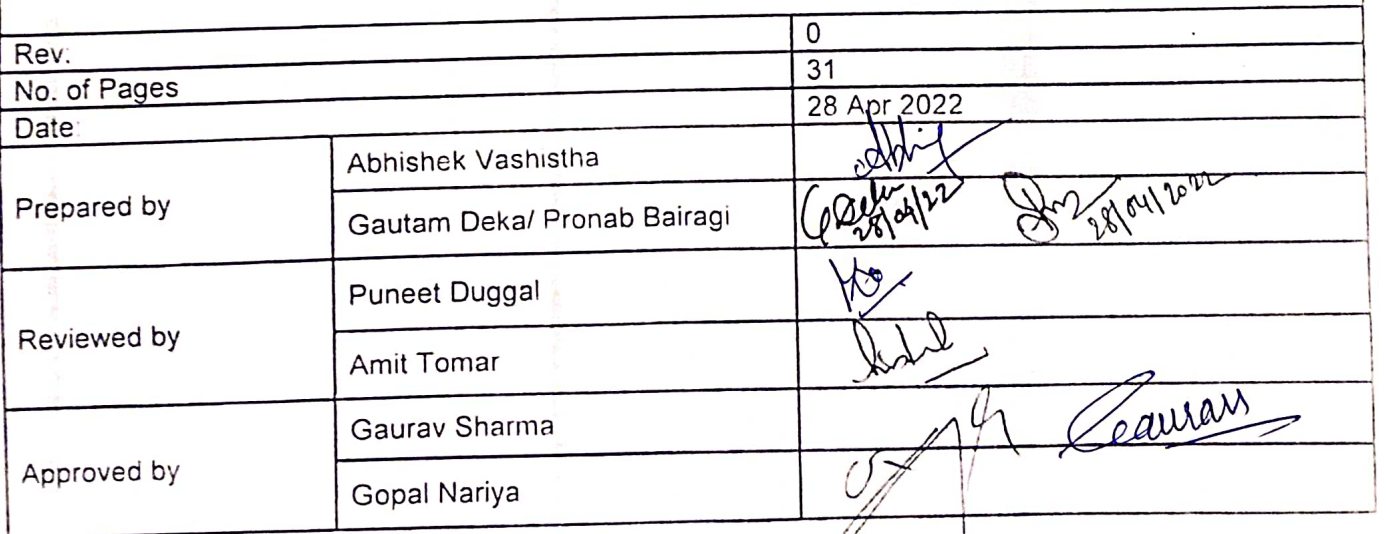 Rev: 0
No. of Pages 31
Date: 28 Apr 2022
Prepared by
Abhishek Vashistha
Gautam Deka/ Pronab Bairagi
28/04/22
28/04/2022
Reviewed by
Puneet Duggal
Amit Tomar
Approved by
Gaurav Sharma
Gaurav
Gopal Nariya